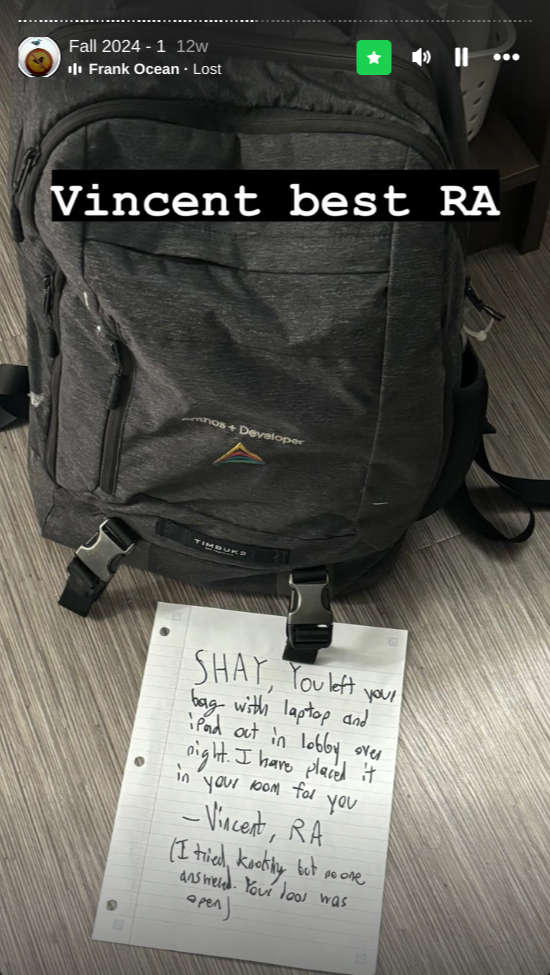 Fall 2024 - 1 12w
Frank Ocean · Lost
Vincent best RA
+ Developer
TIMBUK2
SHAY, You left your
bag with laptop and
iPad out in lobby over
night. I have placed it
in your room for you
—Vincent, RA
(I tried knocking but no one
answered. Your door was
open)